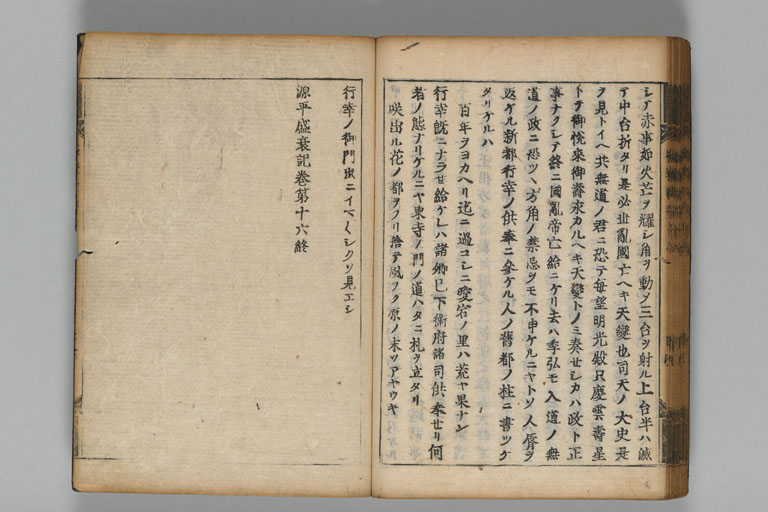 シテ赤事如火芒ヲ耀シ角ヲ動ソ三台ヲ射ル上台半ハ滅
テ中台折タリ是必世亂國亡ヘキ天變也司天ノ大史是
ヲ見トイヘ共無道ノ君ニ恐テ毎望明光殿只慶雲壽星
トテ御悦來御壽永カルヘキ天變トノミ奏せシカハ政ト正
事ナクシテ終ニ國亂帝亡給ニケリ去ハ季弘モ入道ノ無
道ノ政ニ恐ツヽ方角ノ禁忌ヲモ不申ケルニヤトソ人脣ヲ
返ケル新都行幸ノ供奉ニ參ケル人ノ舊都ノ柱ニ書ツケ
タリケルハ
百年ヲヨカヘリ迄ニ過コシニ愛宕ノ里ハ荒ヤ果ナン
行幸既ニナラせ給ケレハ諸卿已下衞府諸司供奉せリ何
者ノ態ナリケルニヤ東寺ノ門ノ道ハタニ札ヲ立タリ
咲出ル花ノ都ヲフリ捨テ風フク原ノ末ソアヤウキ
行幸ノ御門出ニイマ〳〵シクソ見エシ
源平盛衰記卷第十六終